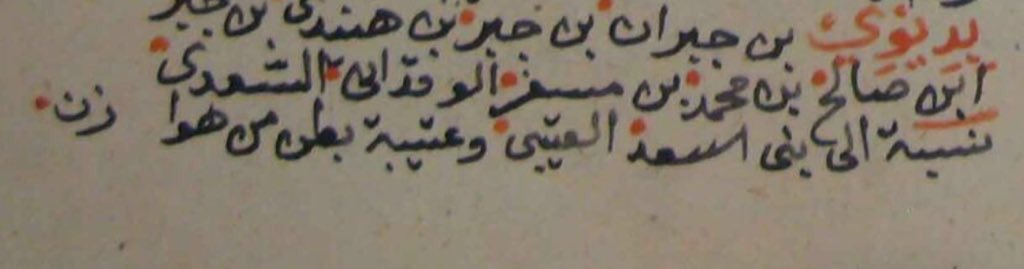 بديوي بن جبران بن جبر بن هندي بن جبر
ابن صالح بن محمد بن مسفر الوقداني السعدي
نسبة الى بني اسعد العتيبي وعتيبة بطن من هوازن